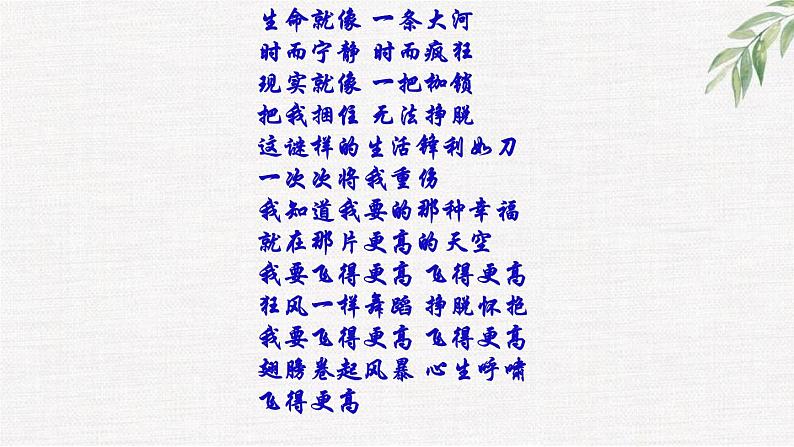 生命就像 一条大河
时而宁静 时而疯狂
现实就像 一把枷锁
把我捆住 无法挣脱
这谜样的生活锋利如刀
一次次将我重伤
我知道我要的那种幸福
就在那片更高的天空
我要飞得更高 飞得更高
狂风一样舞蹈 挣脱怀抱
我要飞得更高 飞得更高
翅膀卷起风暴 心生呼啸
飞得更高